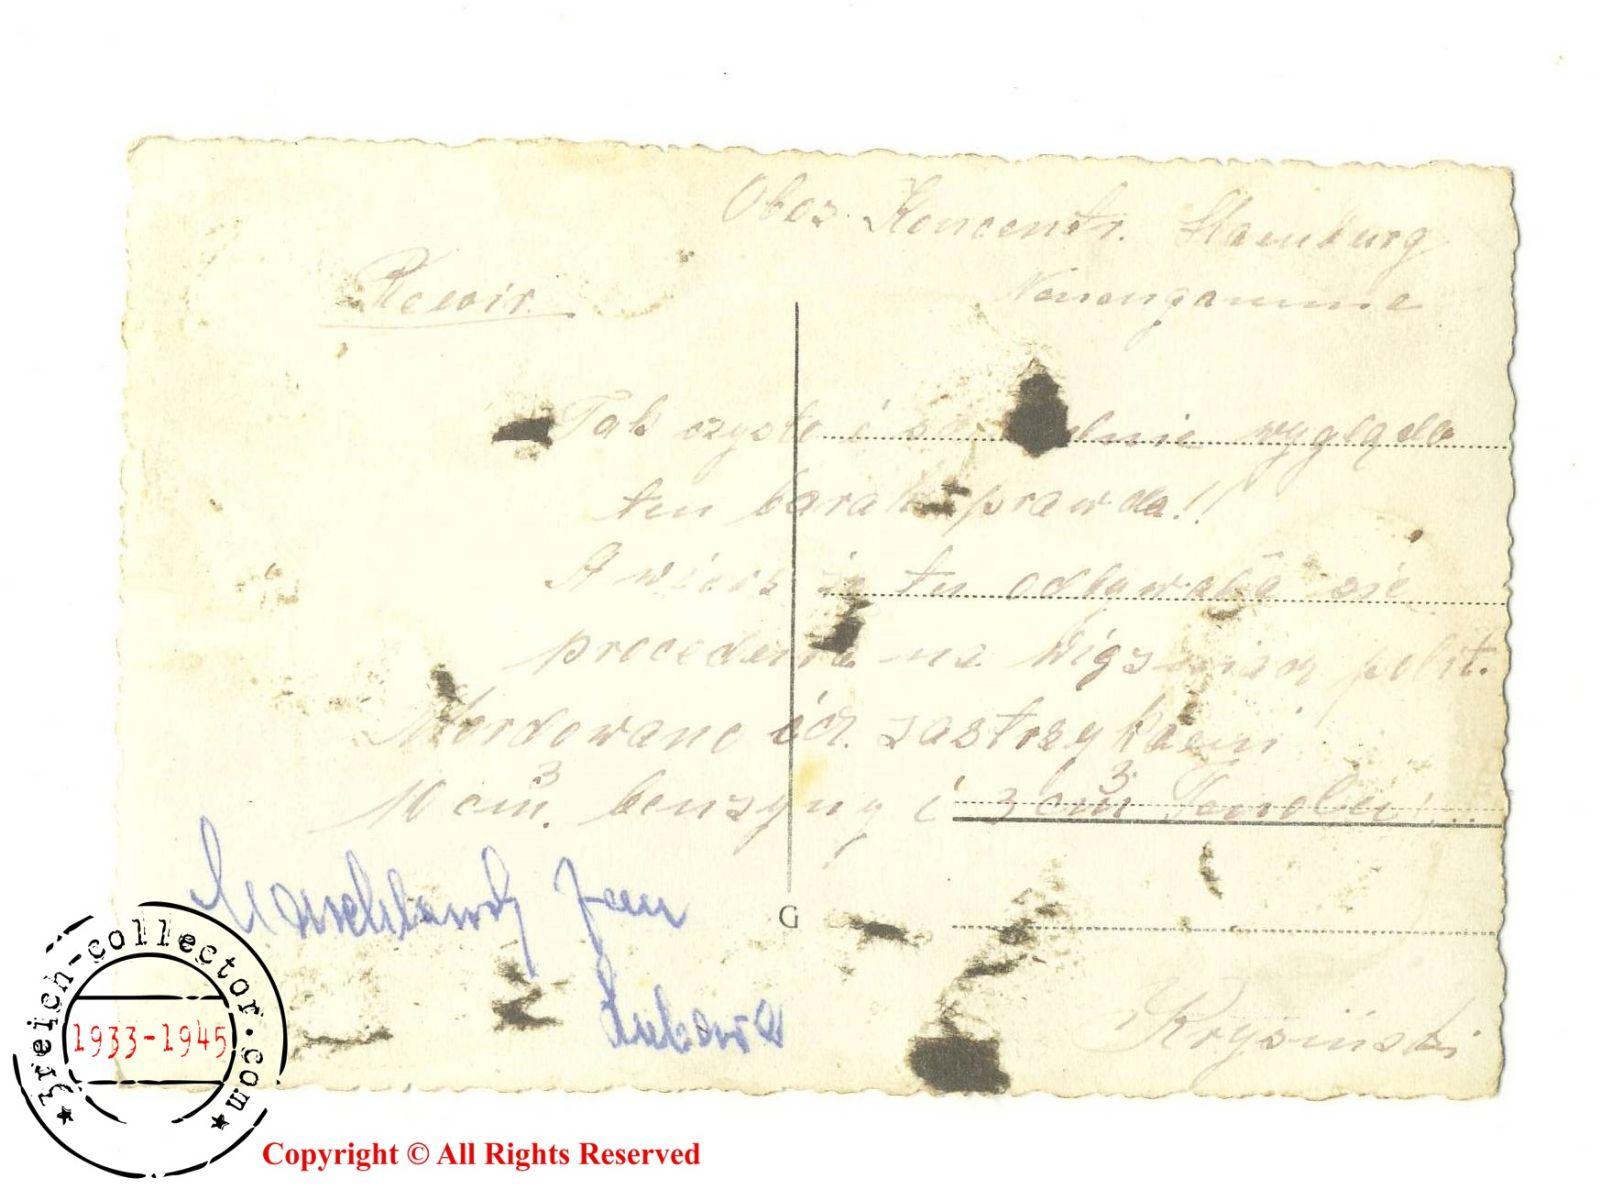 Oboz Koncentr. Hamburg
Rewir.
Neuengamme
Tak czysto i wygląda
ten barak prawda!!
A wiesz że tu odbywała się
na więzniach polit.
Mordowano ich zastrzykiemi
10 cm³. benzyny i 3 cm³
Jan
G
Krysiński
3reich-collector.com
1933-1945
Copyright © All Rights Reserved